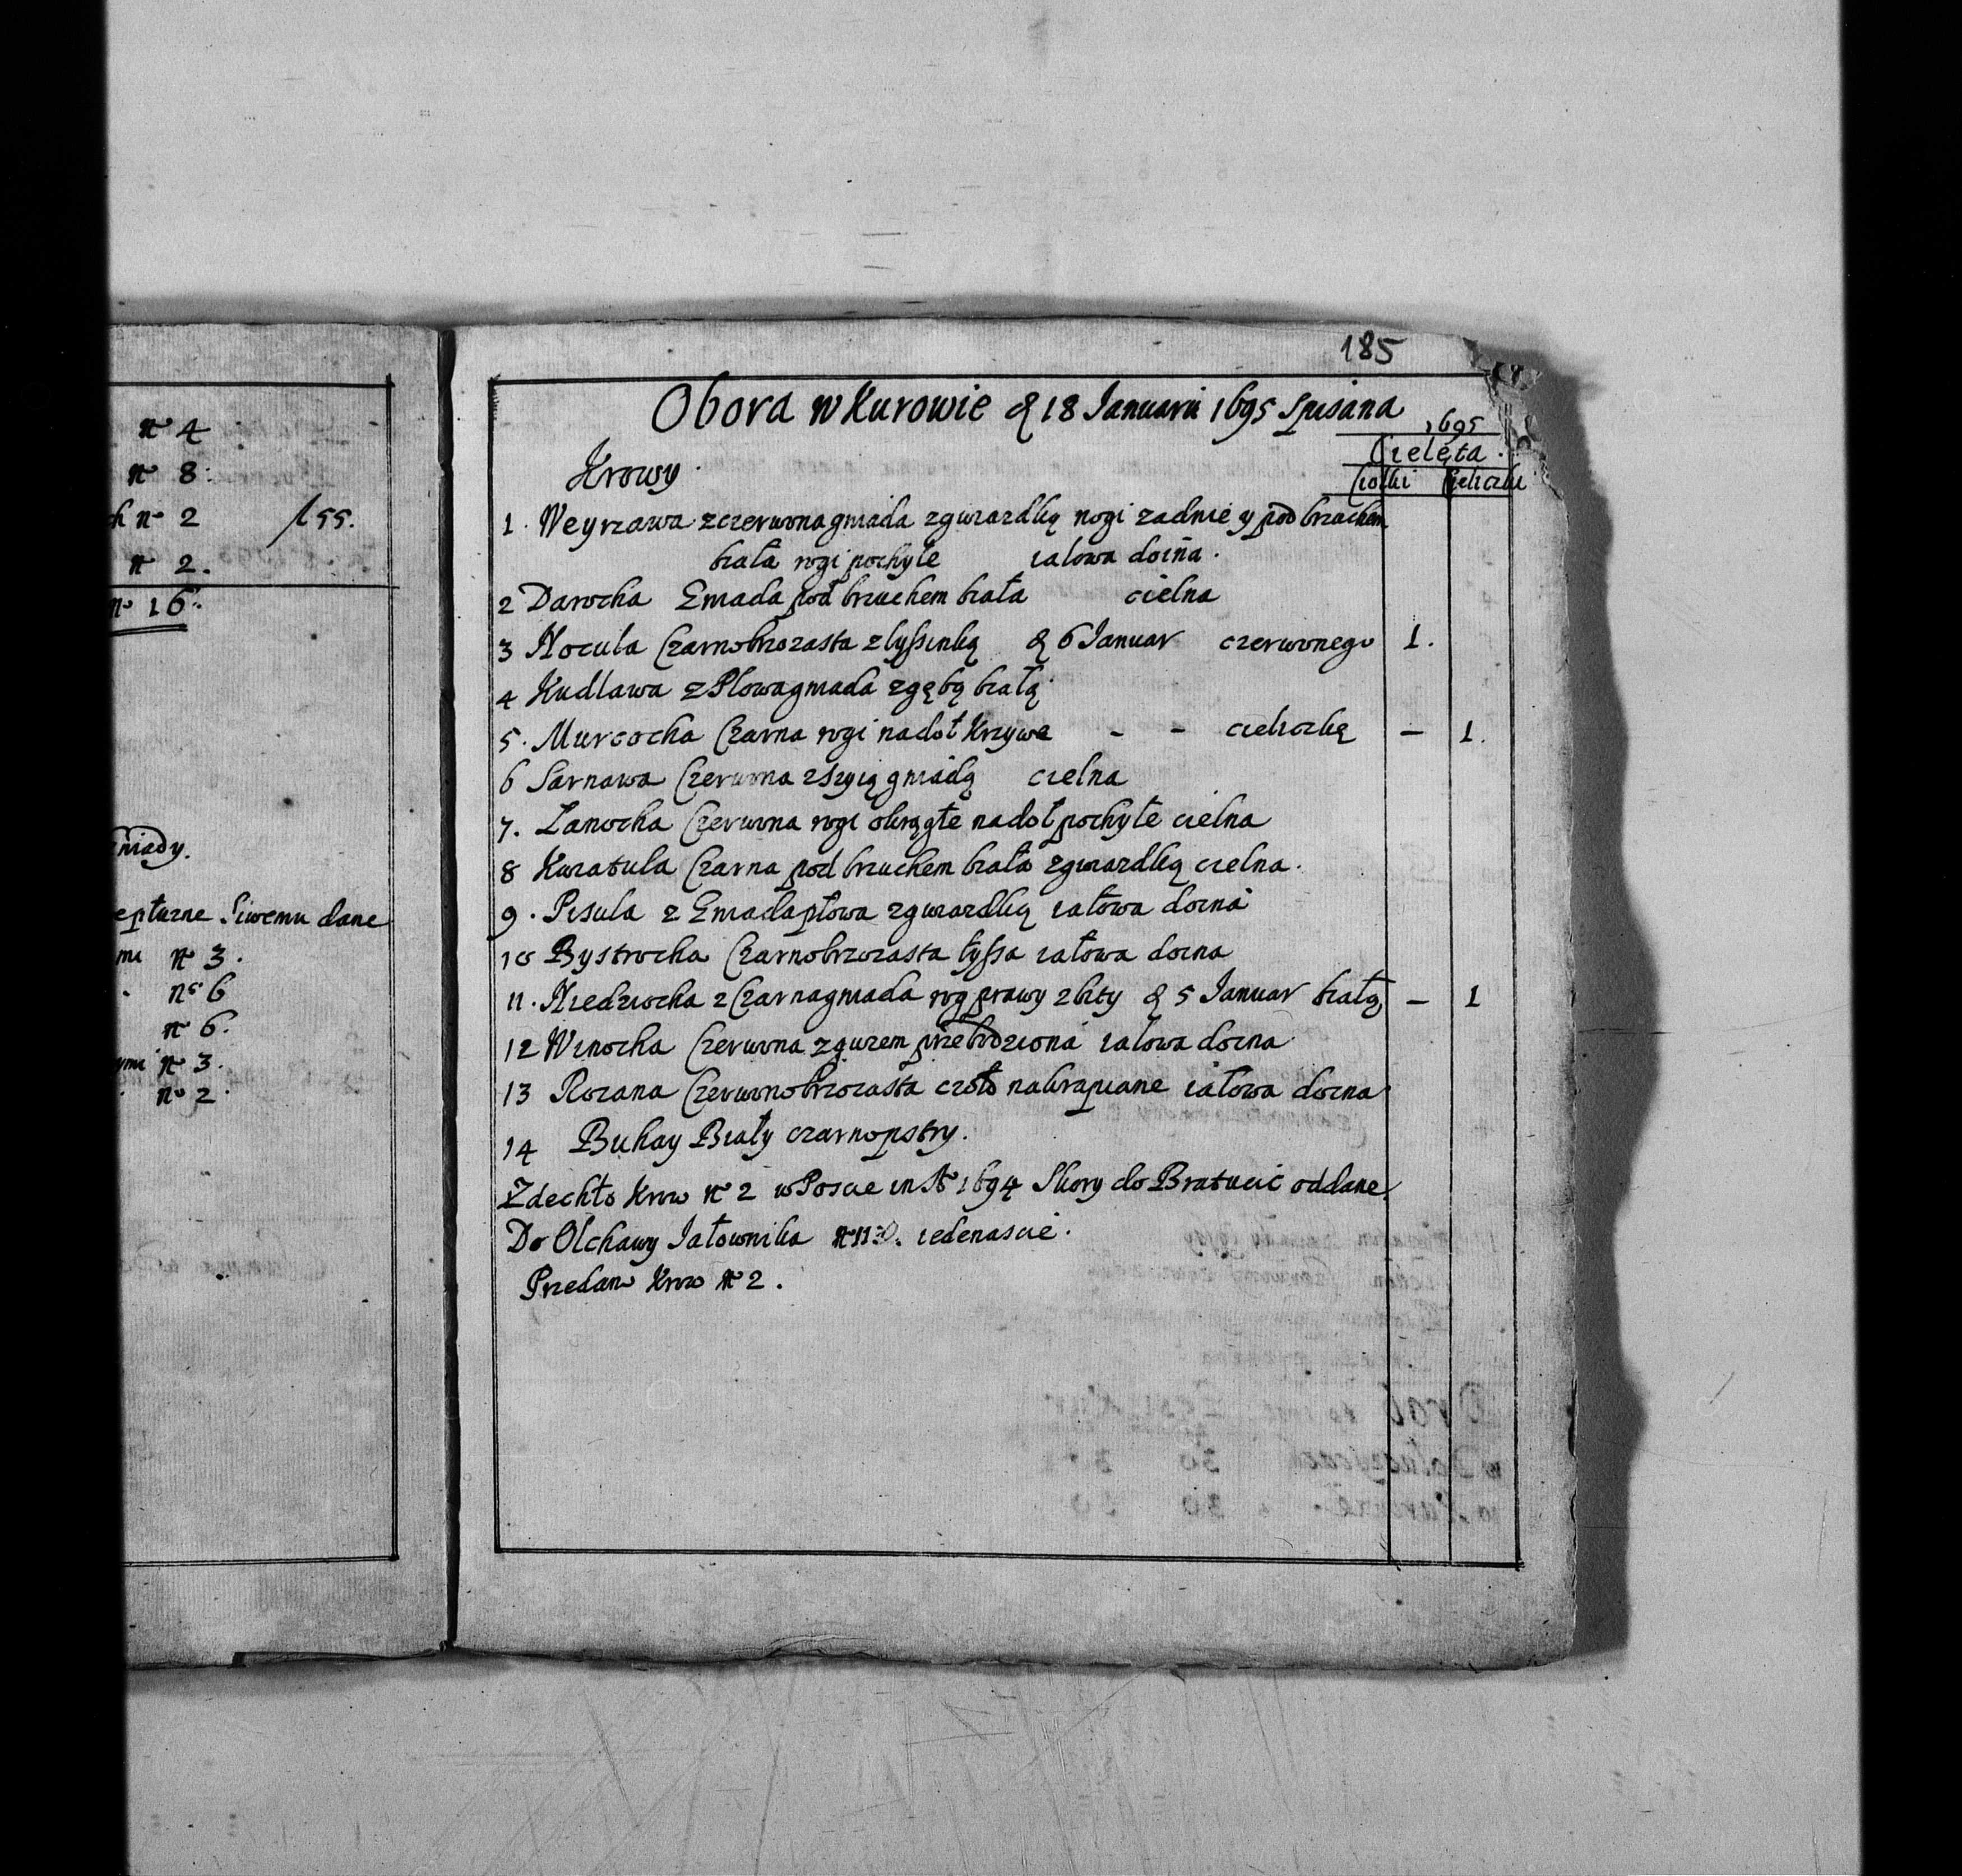 nº 4
nº 8.
h nº 2 /55.
nº 2.
nº 16.
eptuzne Siwemu dane
mi nº 3.
nº 6
nº 6.
ymi nº 3.
nº 2.
185
Obora w Kurowie d 18 Januarii 1695 Spisana
1695
Cielęta.
Krowy.
Ciołki Cieliczki
1. Weyrzawa zczerwonagniada zgwiazdką nogi zadnie y pod brzuchem
biała rogi pochyłe iałowa doina.
2 Darocha Gniada pod brzuchem biała cielna
3 Nocula Czarnobrozasta złyßinką d 6 Januar czerwonego 1.
4 Kudlawa zPlowagniada zgębą białą
5. Murcocha Czarna rogi nadoł krzywe - - cieliczkę — 1.
6 Sarnawa Czerwona zszyią gniadą cielna
7. Lanocha Czerwona rogi okrągłe nadoł pochyłe cielna
8 Kwiatula Czarna pod brzuchem biała zgwiazdką cielna.
9. Pisula z Gniadapłowa zgwiazdką iałowa doina
10 Bystrocha Czarnobrozasta łyßa iałowa doina
11. Niedziocha zCzarnagniada rog prawy zbity d 5 Januar białą — 1
12 Winocha Czerwona zguzem iałowa doina
13 Rozana Czerwonobrozasta czoło nakrapiane iałowa doina
14 Buhay Biały czarnopstry.
Zdechło Krow nº 2 wPoscie in Aº 1694 Skory do Bratucic oddane.
Do Olchawy Jałownika nº 11 iedenascie.
Przedano Krow nº 2.